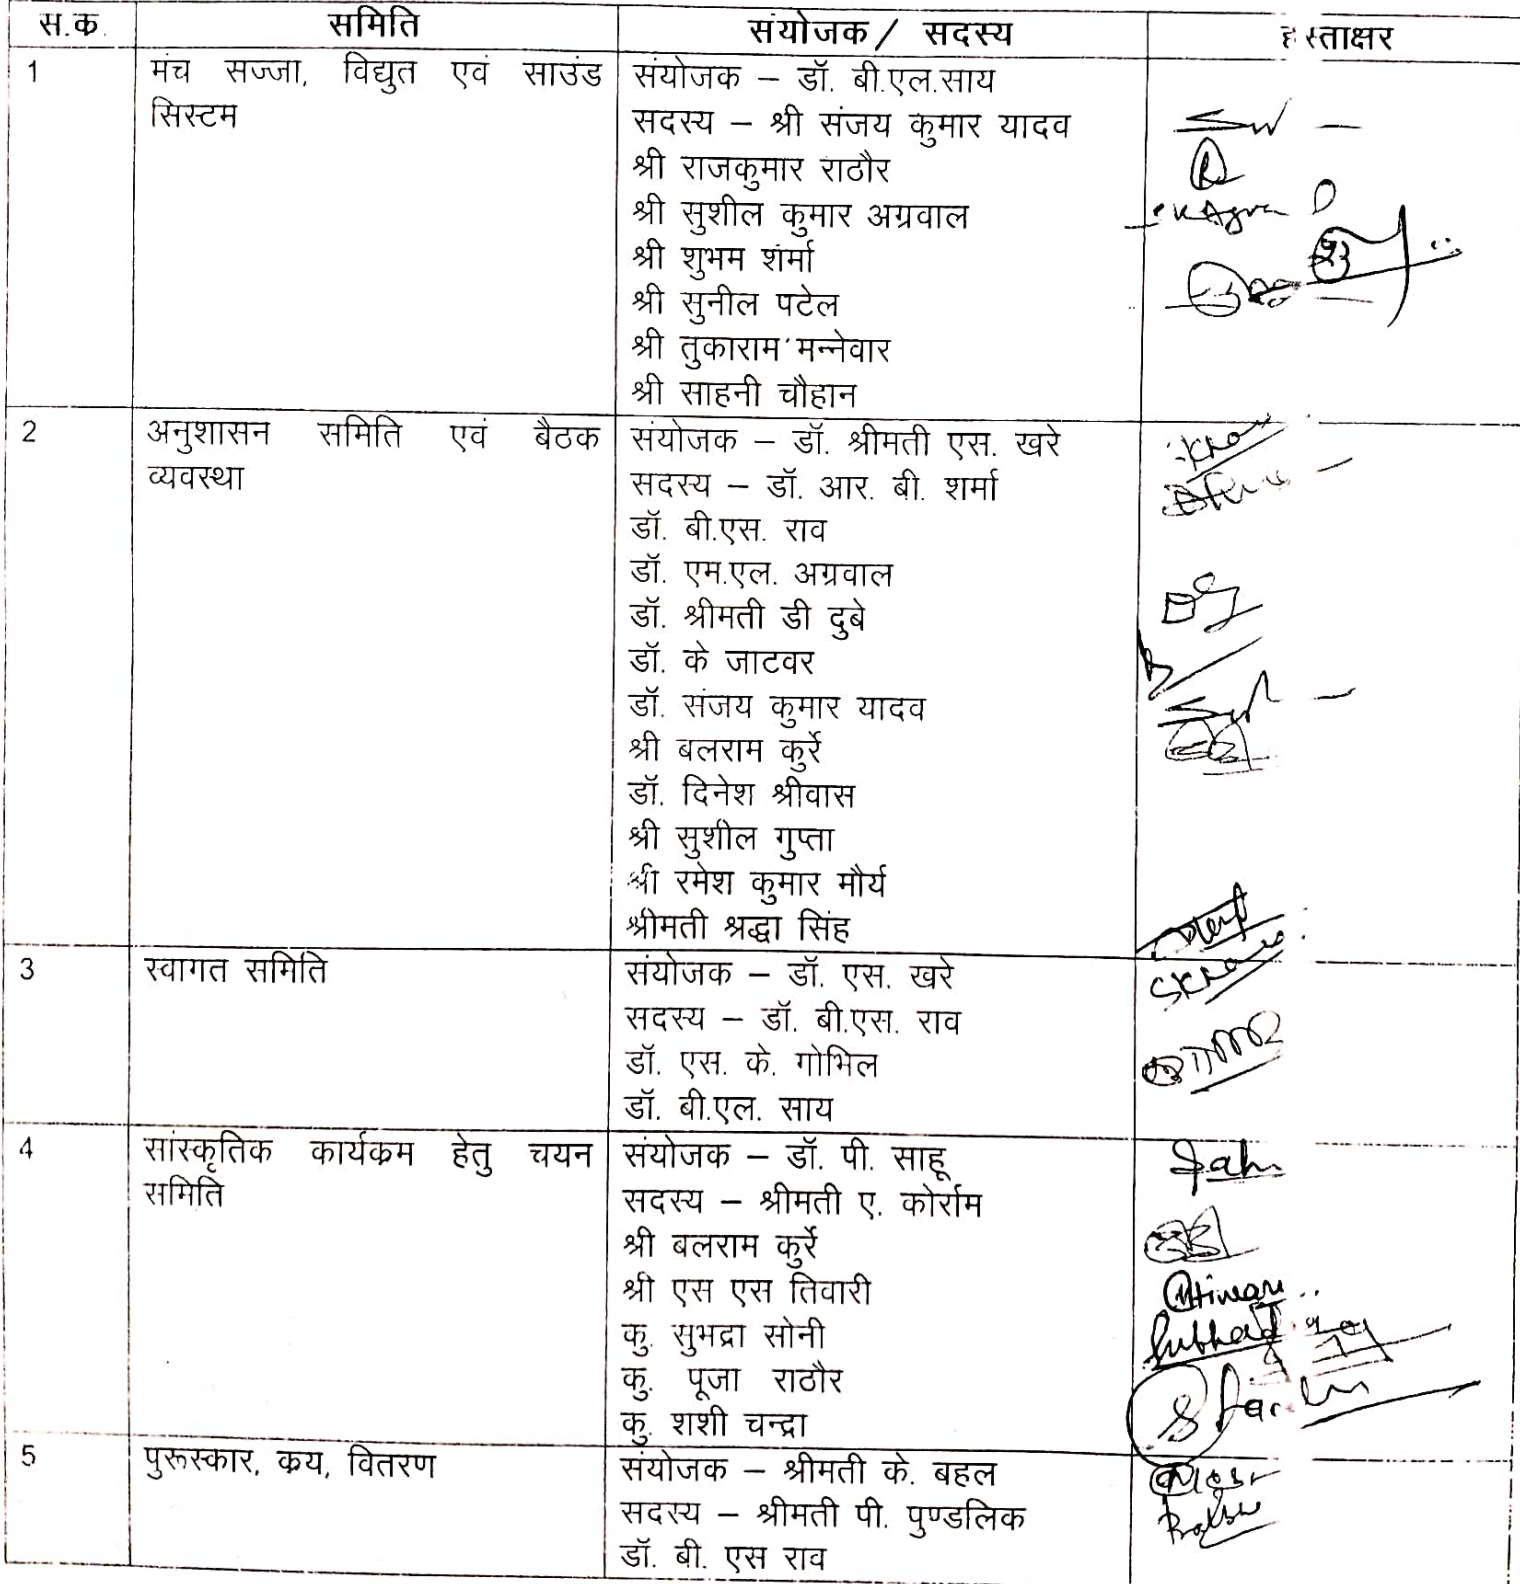 स.क. समिति संयोजक / सदस्य हस्ताक्षर
1 मंच सज्जा, विद्युत एवं साउंड संयोजक – डॉ. बी.एल.साय
सिस्टम सदस्य – श्री संजय कुमार यादव
श्री राजकुमार राठौर
श्री सुशील कुमार अग्रवाल
श्री शुभम शर्मा
श्री सुनील पटेल
श्री तुकाराम मन्नेवार
श्री साहनी चौहान
2 अनुशासन समिति एवं बैठक संयोजक – डॉ. श्रीमती एस. खरे
व्यवस्था सदस्य – डॉ. आर. बी. शर्मा
डॉ. बी.एस. राव
डॉ. एम.एल. अग्रवाल
डॉ. श्रीमती डी दुबे
डॉ. के जाटवर
डॉ. संजय कुमार यादव
श्री बलराम कुर्रे
डॉ. दिनेश श्रीवास
श्री सुशील गुप्ता
श्री रमेश कुमार मौर्य
श्रीमती श्रद्धा सिंह
3 स्वागत समिति संयोजक – डॉ. एस. खरे
सदस्य – डॉ. बी.एस. राव
डॉ. एस. के. गोभिल
डॉ. बी.एल. साय
4 सांस्कृतिक कार्यकम हेतु चयन संयोजक – डॉ. पी. साहू
समिति सदस्य – श्रीमती ए. कोर्राम
श्री बलराम कुर्रे
श्री एस एस तिवारी
कु. सुभद्रा सोनी
कु. पूजा राठौर
कु. शशी चन्द्रा
5 पुरूस्कार, कय, वितरण संयोजक – श्रीमती के. बहल
सदस्य – श्रीमती पी. पुण्डलिक
डॉ. बी. एस राव